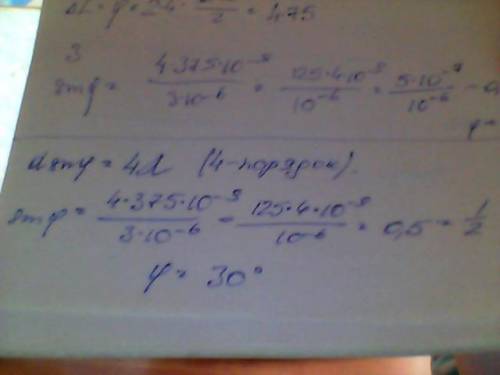 = 475
3
sin φ = 4·375·10⁻⁹ / 3·10⁻⁶ = 125·4·10⁻⁹ / 10⁻⁶ = 5·10⁻⁷ / 10⁻⁶ = 0,
d sin φ = 4λ (4-порядок).
sin φ = 4·375·10⁻⁹ / 3·10⁻⁶ = 125·4·10⁻⁹ / 10⁻⁶ = 0,5 = 1/2
φ = 30°